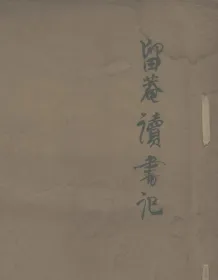 留菴讀書記